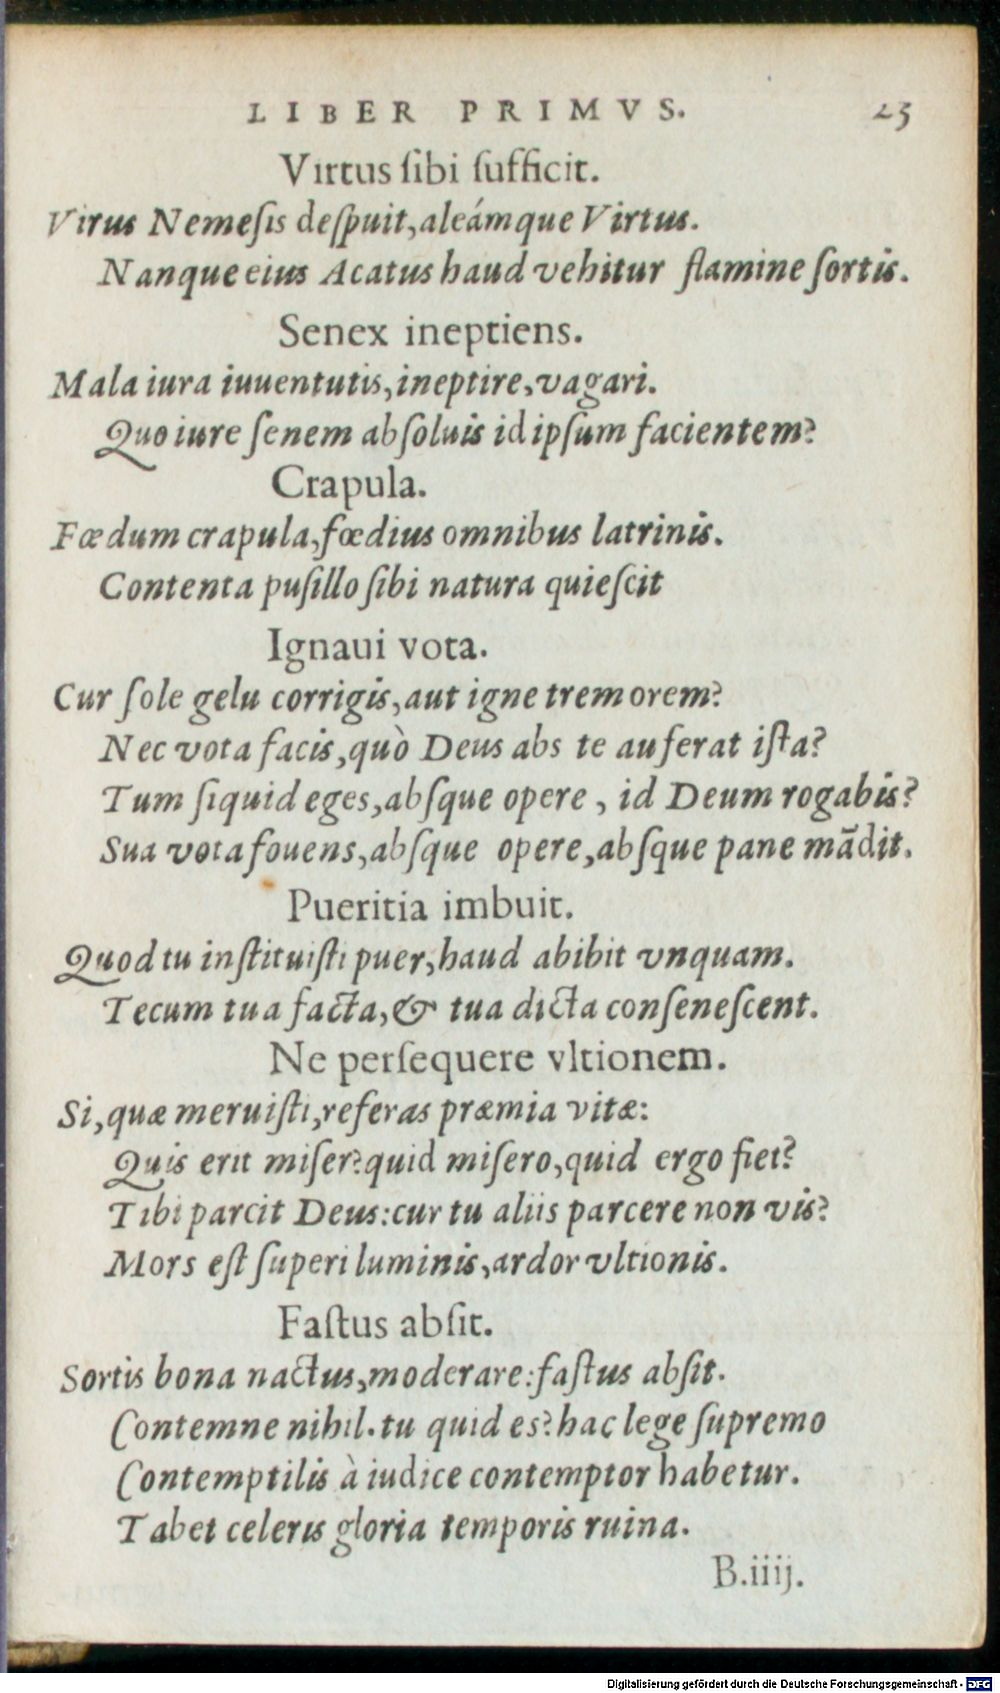 LIBER PRIMVS. 25
Virtus ſibi ſufficit.
Virus Nemeſis deſpuit, aleámque Virtus.
Nanque eius Acatus haud vehitur flamine ſortis.
Senex ineptiens.
Mala iura iuuentutis, ineptire, vagari.
Quo iure ſenem abſoluis id ipſum facientem?
Crapula.
Fœdum crapula, fœdius omnibus latrinis.
Contenta puſillo ſibi natura quieſcit
Ignaui vota.
Cur ſole gelu corrigis, aut igne tremorem?
Nec vota facis, quò Deus abs te auferat iſta?
Tum ſiquid eges, abſque opere, id Deum rogabis?
Sua vota fouens, abſque opere, abſque pane mãdit.
Pueritia imbuit.
Quod tu inſtituiſti puer, haud abibit vnquam.
Tecum tua facta, & tua dicta conſeneſcent.
Ne perſequere vltionem.
Si, quæ meruiſti, referas præmia vitæ:
Quis erit miſer? quid miſero, quid ergo fiet?
Tibi parcit Deus: cur tu aliis parcere non vis?
Mors eſt ſuperi luminis, ardor vltionis.
Faſtus abſit.
Sortis bona nactus, moderare: faſtus abſit.
Contemne nihil. tu quid es? hac lege ſupremo
Contemptilis à iudice contemptor habetur.
Tabet celeris gloria temporis ruina.
B.iiij.
Digitalisierung gefördert durch die Deutsche Forschungsgemeinschaft - DFG